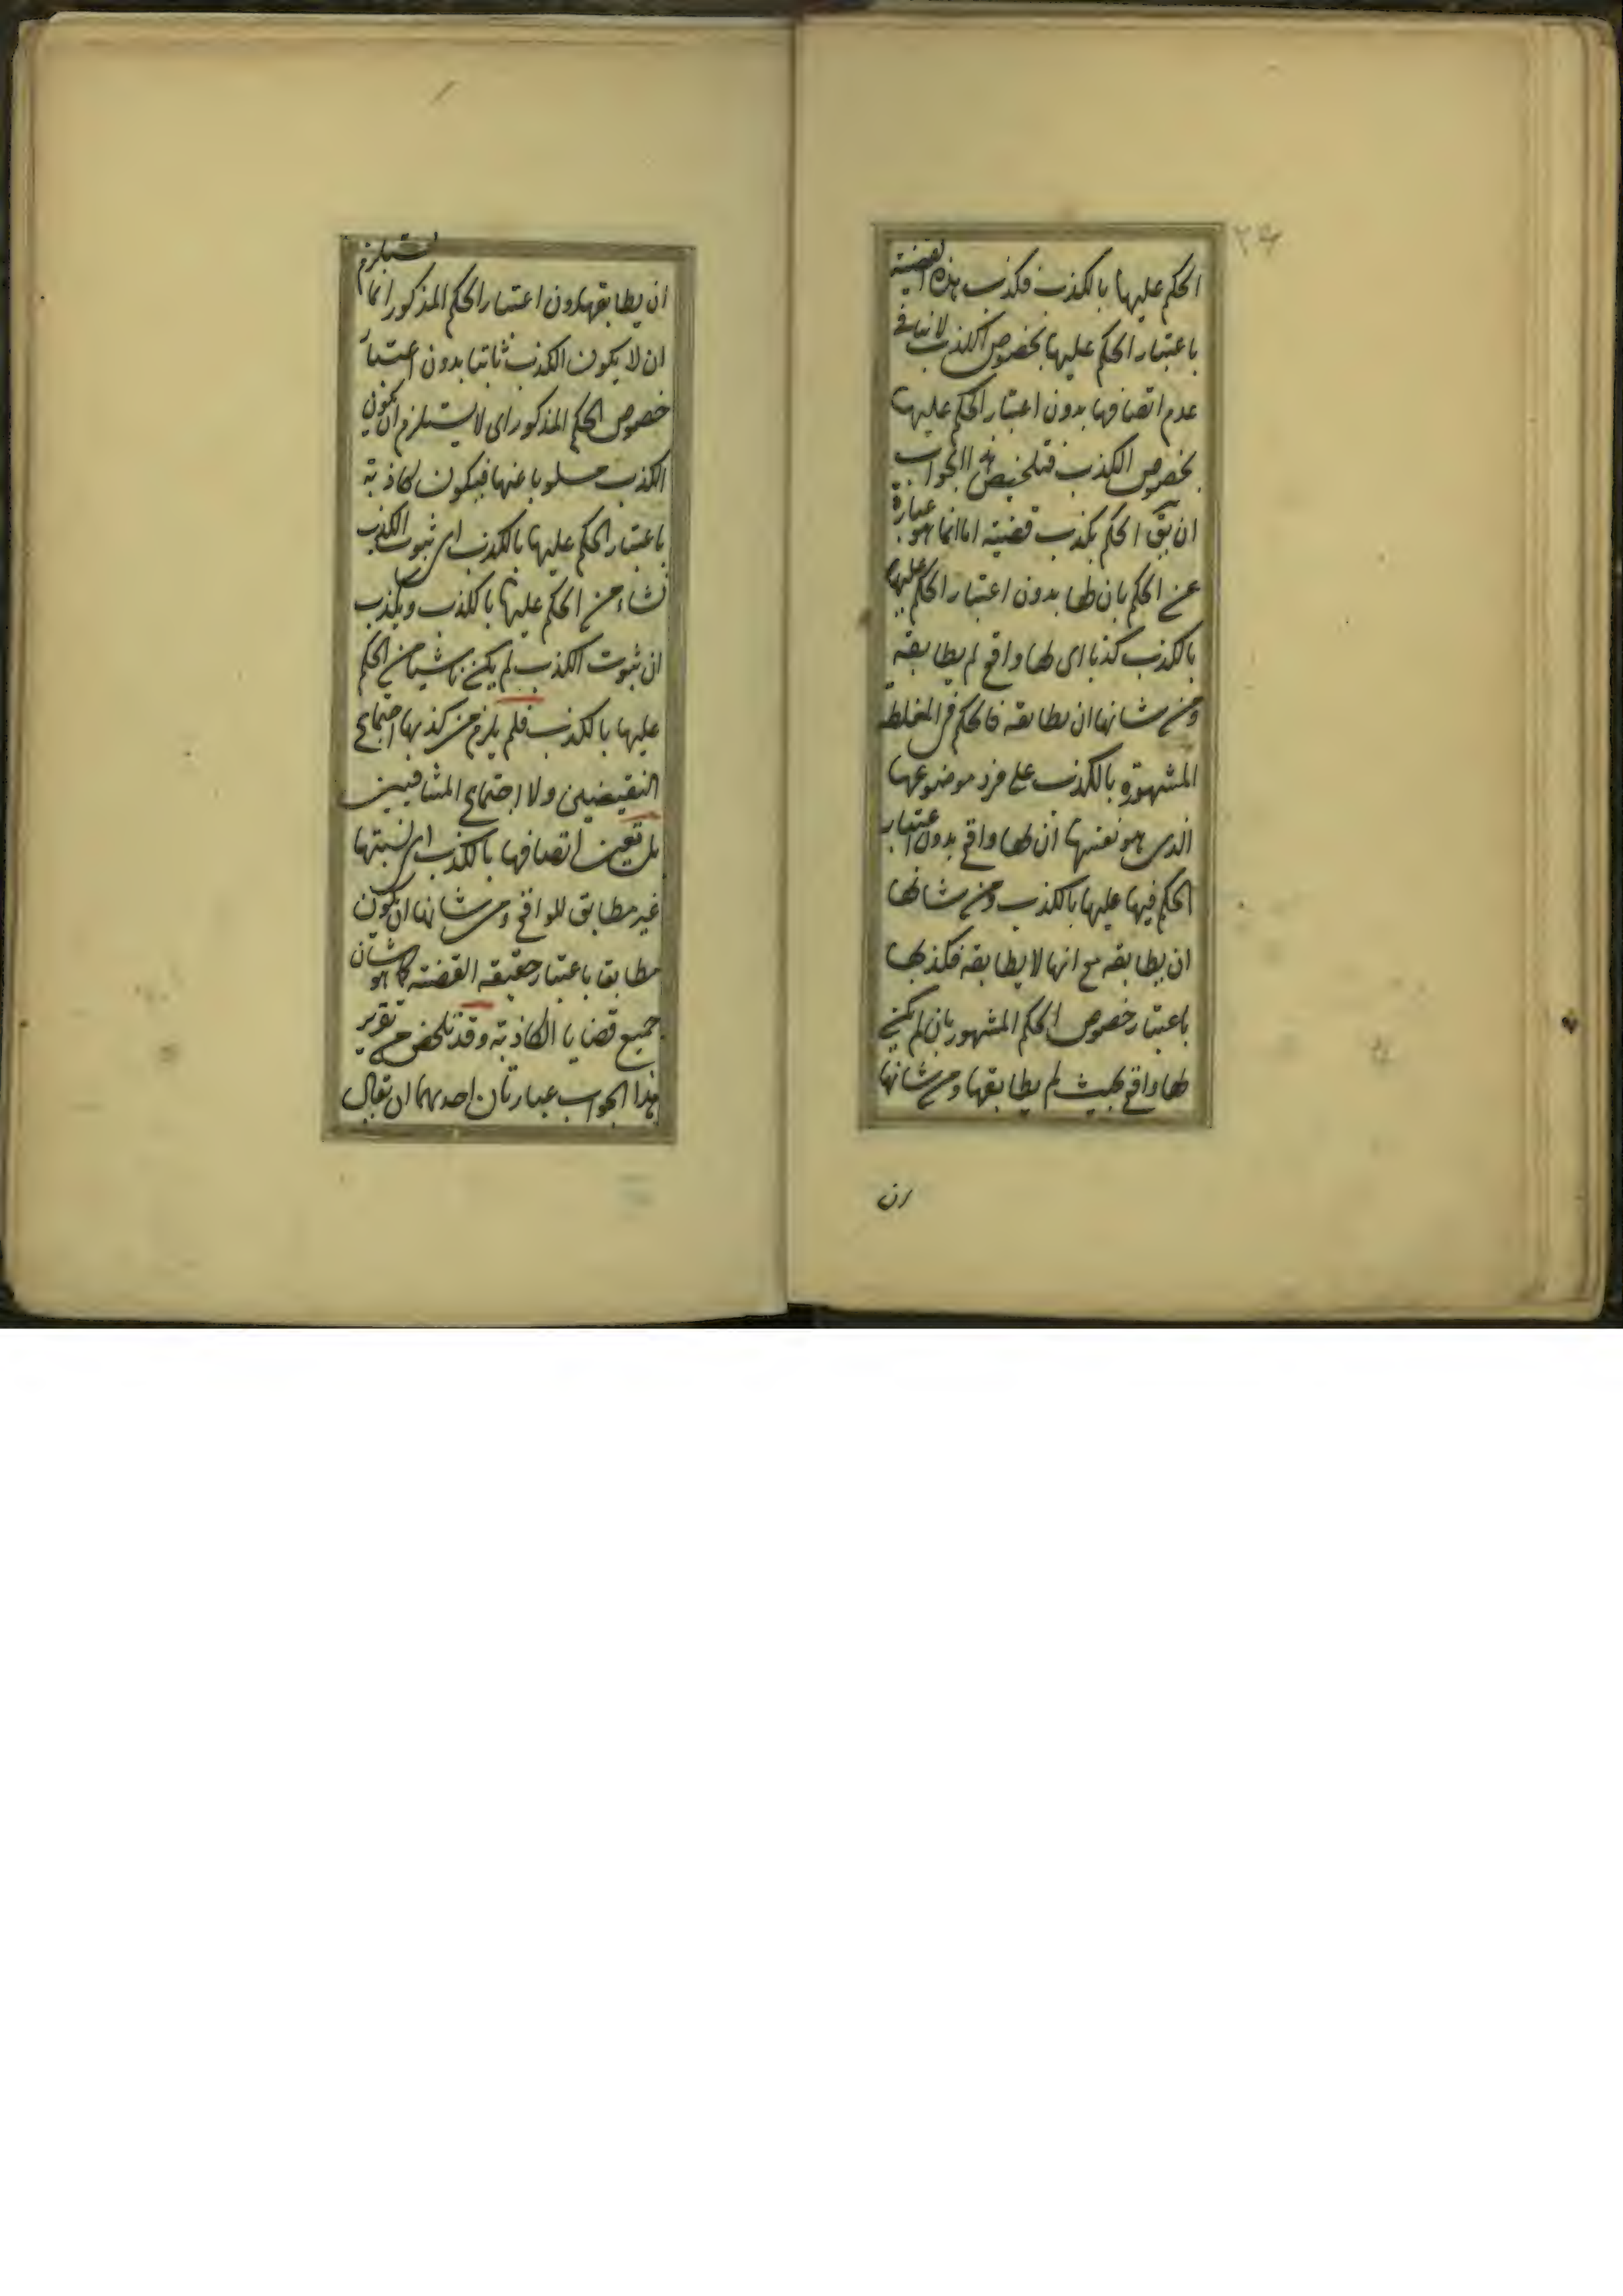 ٢٤
الحكم عليها بالكذب فكذب هذه القضية
باعتبار الحكم عليها بخصوص الكذب لا ينافى
عدم اتصافها بدون اعتبار الحكم عليها
بخصوص الكذب فتلخيص هذا الجواب
ان يق الحكم بكذب قضية اما انما هو عبارة
عن الحكم بان لها بدون اعتبار الحكم عليها
بالكذب كذبا اى لها واقع لم يطابقه
ومن شانها ان يطابقه فالحكم فى المغلطة
المشهورة بالكذب على فرد موضوعها
الذى هو نفسها ان لها واقع بدون اعتبار
الحكم فيها عليها بالكذب ومن شانها
ان يطابقه مع انها لا يطابقه فكذبها
باعتبار خصوص الحكم المشهور بان لم يكن
لها واقع بحيث لم يطابقها ومن شانها
ان
ان يطابقها بدون اعتبار الحكم المذكور انما يستلزم
ان لا يكون الكذب ثابتا بدون اعتبار
خصوص الحكم المذكور اى لا يستلزم ان يكون
الكذب مسلوبا عنها فيكون كاذبة
باعتبار الحكم عليها بالكذب اى ثبوت الكذب
نشاء من الحكم عليها بالكذب ويكذب
ان ثبوت الكذب لم يكن ناشيا من الحكم
عليها بالكذب فلم يلزم من كذبها اجتماع
النقيضين ولا اجتماع المتنافيين
بل تعين اتصافها بالكذب اى نسبتها
غير مطابق للواقع ومن شانها ان يكون
مطابقا باعتبار حقيقة القضية كما هو شان
جميع قضايا الكاذبة وقد تلخص من تقرير
هذا الجواب عبارتان احديهما ان يقال